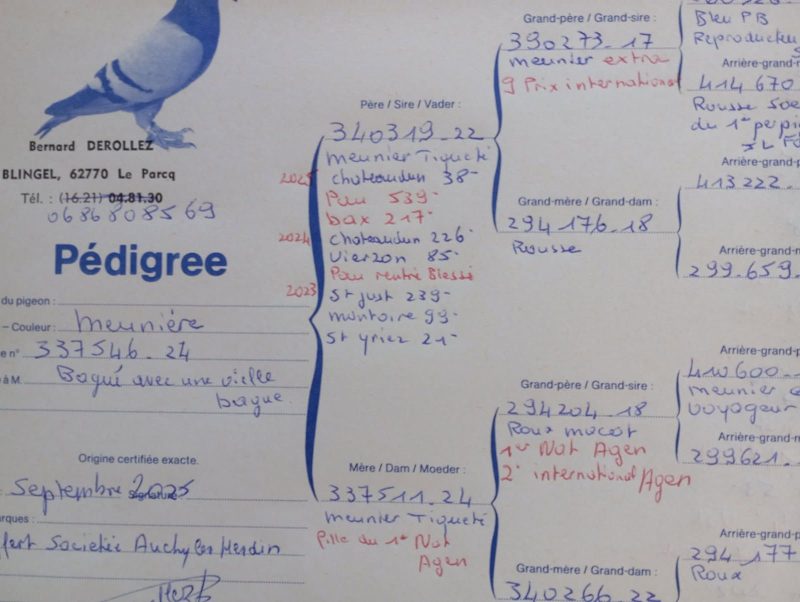 Bernard DEROLLEZ
BLINGEL, 62770 Le Parcq
Tél. : (16.21) 04.81.30
0686808569
Pédigree
du pigeon :
– Couleur : meunière
e n° 337546_24
à M. Bagué avec une vielle
bague.
Origine certifiée exacte.
Septembre 2025
Signature
arques :
fert Societée Auchy les Hesdin
Père / Sire / Vader :
340319_22
meunier Tiqueté
2025 chateaudun 38-
Pau 539-
bax 217-
2024 chateaudun 226-
Vierzon 85-
Pau rentré Blessé
2023 St just 239-
montoire 99-
St yriex 21-
Mère / Dam / Moeder :
337511_24
meunier Tiqueté
fille du 1er Nat
Agen
Grand-père / Grand-sire :
390273_17
meunier extra
9 Prix international
Grand-mère / Grand-dam :
294176_18
Rousse
Grand-père / Grand-sire :
294204_18
Roux macot
1er Nat Agen
2e international Agen
Grand-mère / Grand-dam :
340266_22
Bleu PB
Reproducteur
Arrière-grand-m
414670
Rousse Soe
du 1er perpi
Arrière-grand-p
413222_
Arrière-grand-m
299_659_
Arrière-grand-p
410600_
meunier
voyageur
Arrière-grand-m
299621_
Arrière-grand-p
294177
Roux